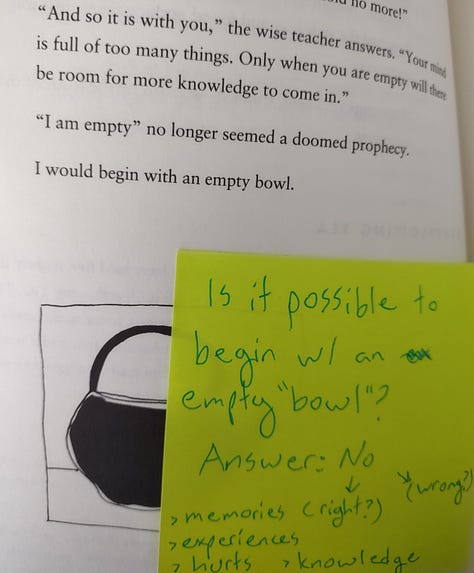 no more!"
"And so it is with you," the wise teacher answers. "Your mind
is full of too many things. Only when you are empty will there
be room for more knowledge to come in."
"I am empty" no longer seemed a doomed prophecy.
I would begin with an empty bowl.
Is it possible to
begin w/ an
empty "bowl"?
Answer: No
(wrong?)
> memories (right?)
> experiences
> hurts > knowledge